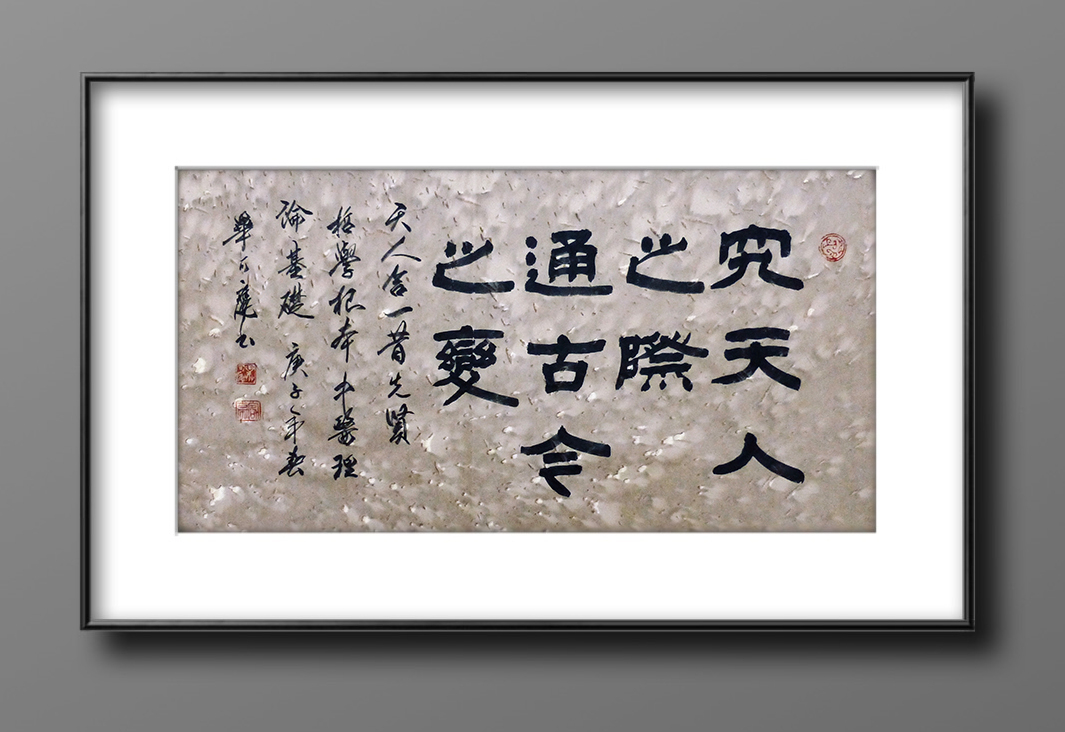 究天人
之際
通古今
之變
天人合一昔先賢
哲學根本中醫理
論基礎 庚子年春